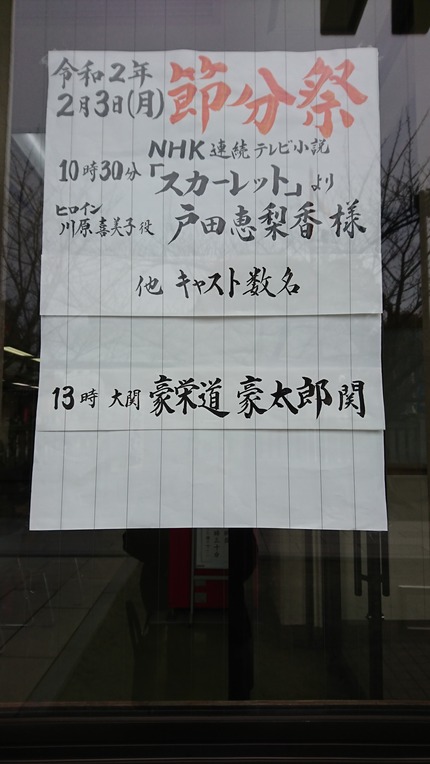 令和2年
2月3日(月)
節分祭
NHK 連続テレビ小説
10時30分
「スカーレット」より
ヒロイン
川原喜美子役
戸田恵梨香様
他 キャスト数名
13時 大関 豪栄道 豪太郎関